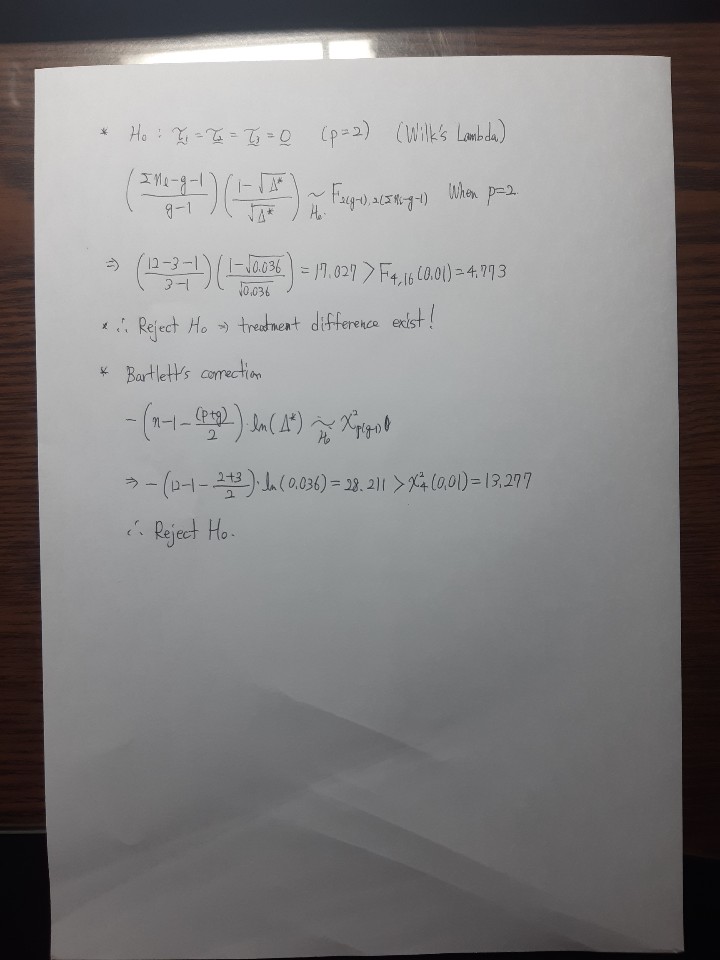 * H₀ : τ₁ = τ₂ = τ₃ = 0 (p=2) (Wilk's Lambda)
((Σnℓ-g-1)/(g-1)) ((1-√Λ*)/√Λ*) ~ H₀ F₂(g-1), 2(Σnℓ-g-1) When p=2.
⇒ ((12-3-1)/(3-1)) ((1-√0.036)/√0.036) = 17.027 > F₄,₁₆(0.01) = 4.773
* ∴ Reject H₀ ⇒ treatment difference exist!
* Bartlett's correction
-(n-1-(p+g)/2)·ln(Λ*) ~ H₀ χ²p(g-1)
⇒ -(12-1-(2+3)/2)·ln(0.036) = 28.211 > χ²₄(0.01) = 13.277
∴ Reject H₀.